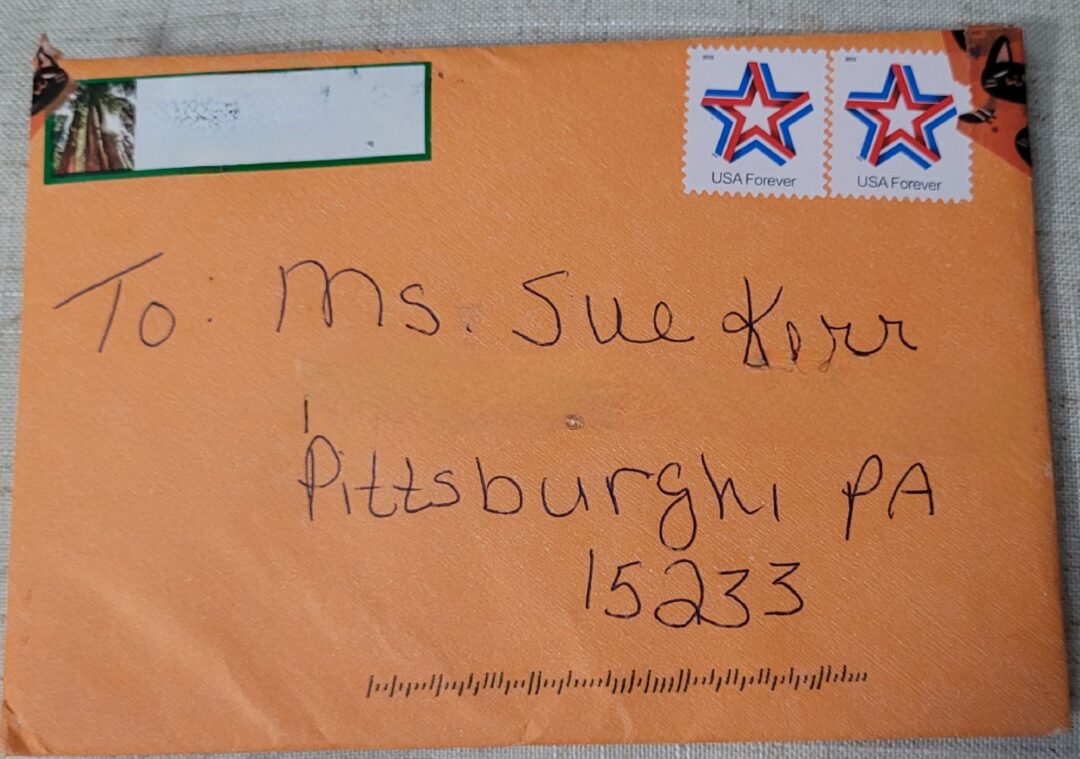 USA Forever
USA Forever
To: Ms. Sue Kerr
Pittsburgh, PA
15233